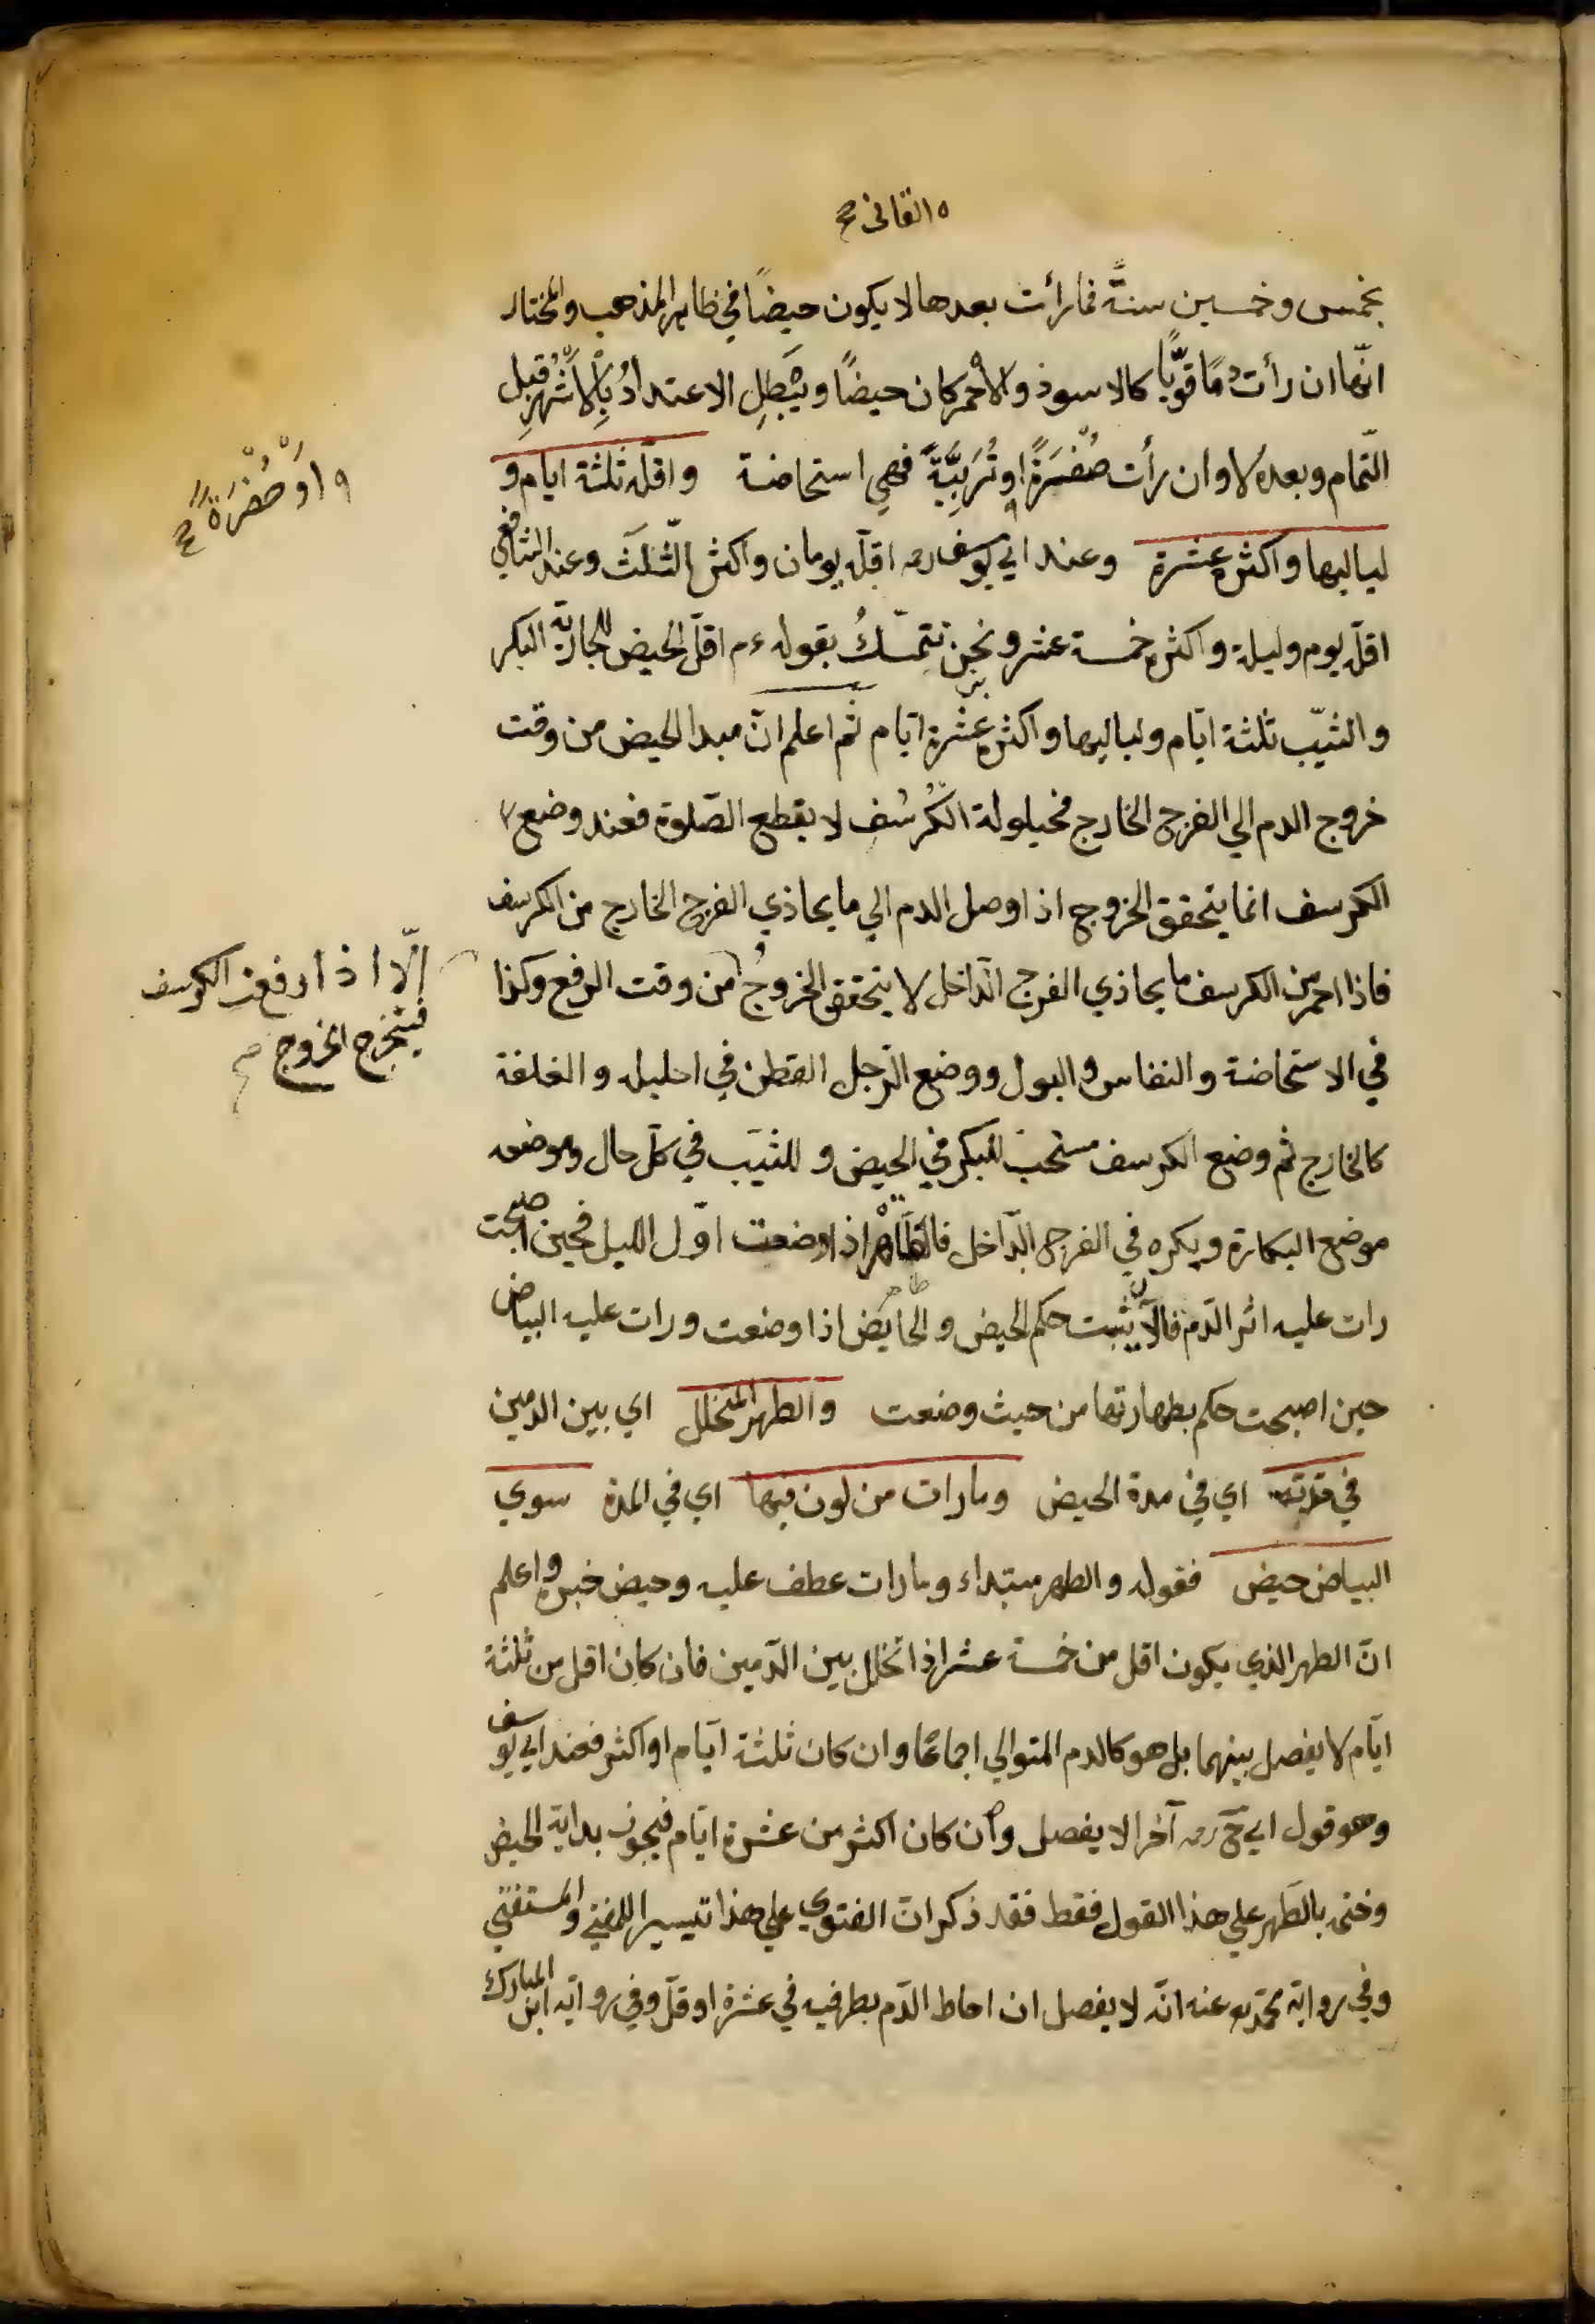 ه القانى صح
بخمس وخمسين سنةً فما رأت بعدها لا يكون حيضًا في ظاهر المذهب والمختار
انّها ان رأت دمًا قويًّا كالاسود والاحمر كان حيضًا ويبطل الاعتدادُ بالاشهر قبل
التّمام وبعده لا وان رأت صُفْرَةً او تُرَبِيَّةً فهي استحاضة واقله ثلثة ايام و
او خُضْرَةً صح
لياليها واكثره عشرة وعند ابي يوسف رحه اقلّه يومان واكثر الثّلث وعند الشافعي
اقلّه يوم وليلة واكثره خمسة عشر ونحن نتمسّكُ بقوله ءم اقلّ الحيض للجارية البكر
والثيّب ثلثة ايّام ولياليها واكثره عشرة ايّام ثم اعلم انّ مبدا الحيض من وقت
خروج الدم الي الفرج الخارج فحيلولة الكُرسُفِ لا يقطع الصّلوة فعند وضع
الكرسف انما يتحقق الخروج اذا وصل الدم الي ما يحاذي الفرج الخارج من الكرسف
فاذا احمر من الكرسف ما يحاذي الفرج الدّاخل لا يتحقق الخروجُ من وقت الرفع وكذا
الّا اذا رفعت الكرسف
فيتخرج الخروج صح
في الاستحاضة والنفاس والبول ووضع الرّجل القطن في احليله والغلفة
كالخارج ثم وضع الكرسف مستحب للبكر في الحيض وللثيّب في كلّ حال وموضعه
موضع البكارة ويكره في الفرج الدّاخل فالطاهر اذا وضعت اوّل الليل فحين اصبحت
رات عليه اثر الدّم فالآن يثبت حكم الحيض والحايض اذا وضعت ورات عليه البياض
حين اصبحت حكم بطهارتها من حيث وضعت والطهر المتخلل اي بين الدمين
في مدّته اي في مدة الحيض وما رات من لون فيها اي في المدة سوي
البياض حيض فقوله والطهر مبتداء وما رات عطف عليه وحيض خبره واعلم
انّ الطهر الذي يكون اقل من خمسة عشر اذا تخلل بين الدّمين فان كان اقل من ثلثة
ايّام لا يفصل بينهما بل هو كالدم المتوالي اجماعًا وان كان ثلثة ايّام او اكثر فعند ابي يوسف
وهو قول ابي ح رحه آخرا لا يفصل وان كان اكثر من عشرة ايّام فيجوز بداية الحيض
وختمه بالطهر علي هذا القول فقط فقد ذكر انّ الفتوي علي هذا تيسيرا للمفتي والمستفتي
وفي رواية محمّد عنه انّه لا يفصل ان احاط الدّم بطرفيه في عشرة او قلّ وفي رواية ابن المبارك